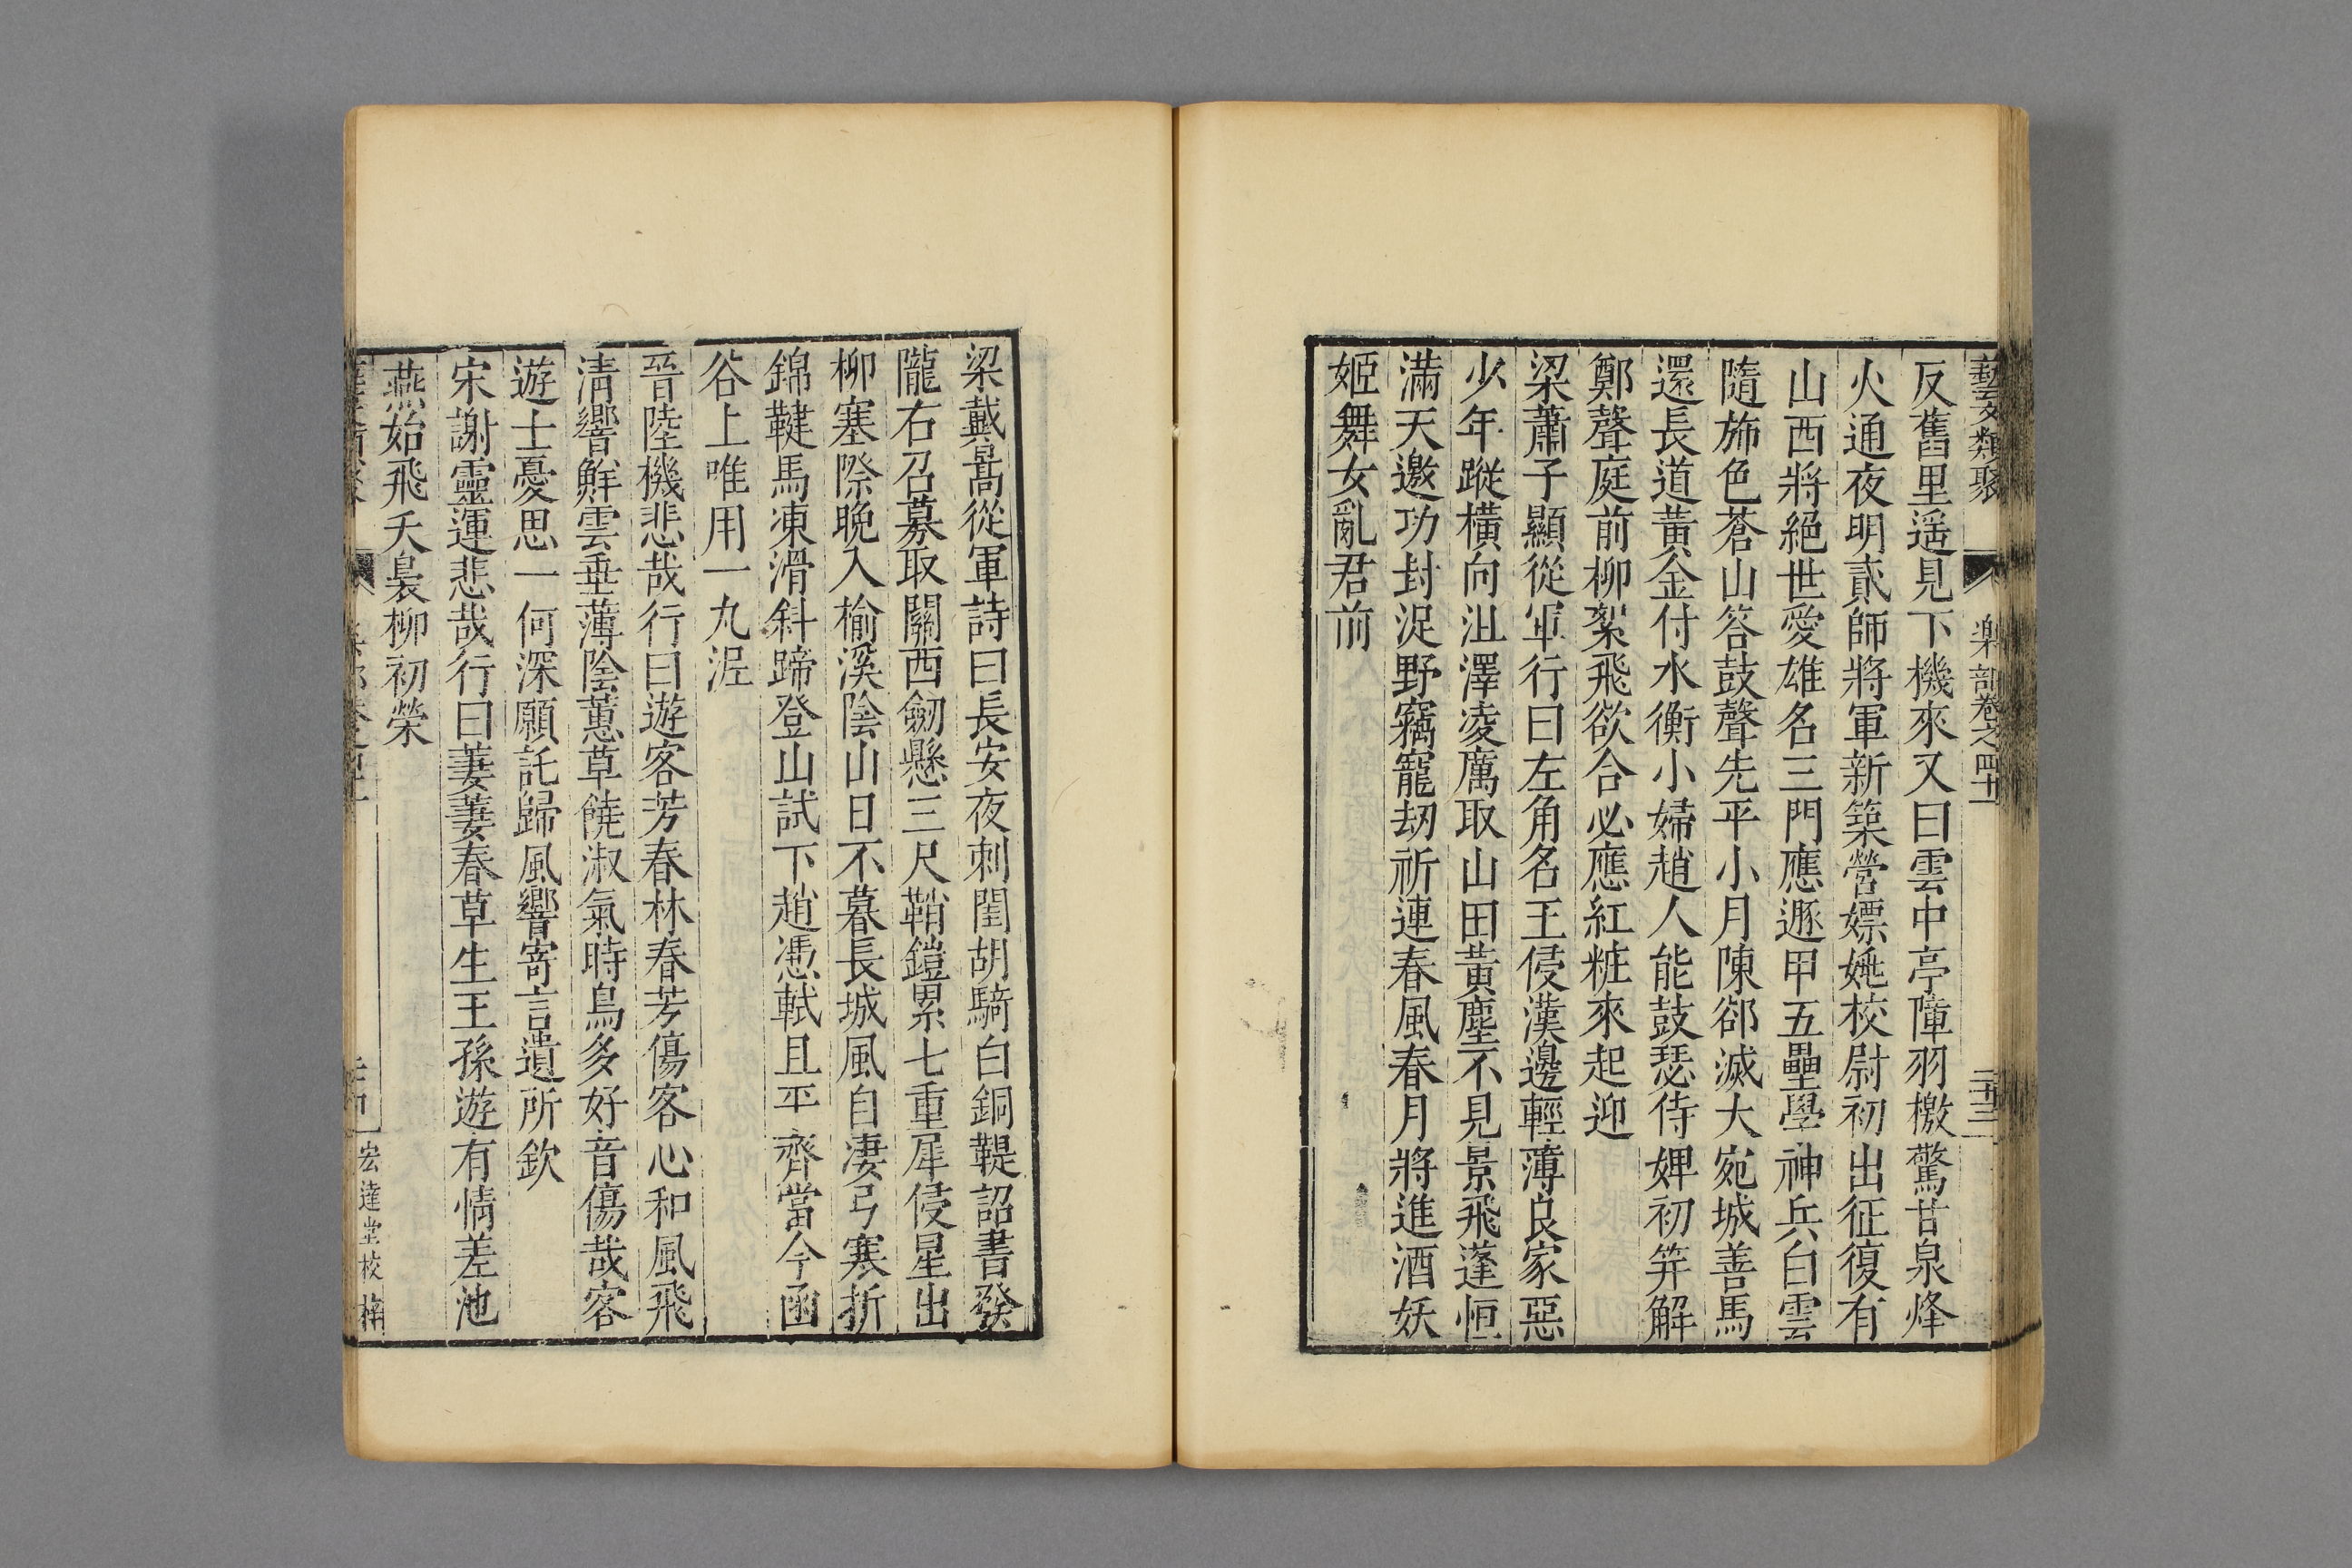 藝文類聚 樂部卷之四十一 二十三
反舊里遥見下機來又曰雲中亭障羽檄驚甘泉烽
火通夜明貳師將軍新築營嫖姚校尉初出征復有
山西將絕世愛雄名三門應遯甲五壘學神兵白雲
隨斾色蒼山答鼓聲先平小月陳卻滅大宛城善馬
還長道黃金付水衡小婦趙人能鼓瑟侍婢初笄解
鄭聲庭前柳絮飛欲合必應紅粧來起迎
梁蕭子顯從軍行曰左角名王侵漢邊輕薄良家惡
少年蹤橫向沮澤凌厲取山田黃塵不見景飛蓬恒
滿天邀功封浞野竊寵劫祈連春風春月將進酒妖
姬舞女亂君前
梁戴暠從軍詩曰長安夜刺閨胡騎白銅鞮詔書發
隴右召募取關西劒懸三尺鞘鎧累七重犀侵星出
柳塞際晚入榆溪陰山日不暮長城風自凄弓寒折
錦鞬馬凍滑斜蹄登山試下趙憑軾且平齊當今函
谷上唯用一丸泥
晉陸機悲哉行曰遊客芳春林春芳傷客心和風飛
清響鮮雲垂薄陰蕙草饒淑氣時鳥多好音傷哉客
遊士憂思一何深願託歸風響寄言遺所欽
宋謝靈運悲哉行曰萋萋春草生王孫遊有情差池
燕始飛夭裊柳初榮
宏達堂校梓